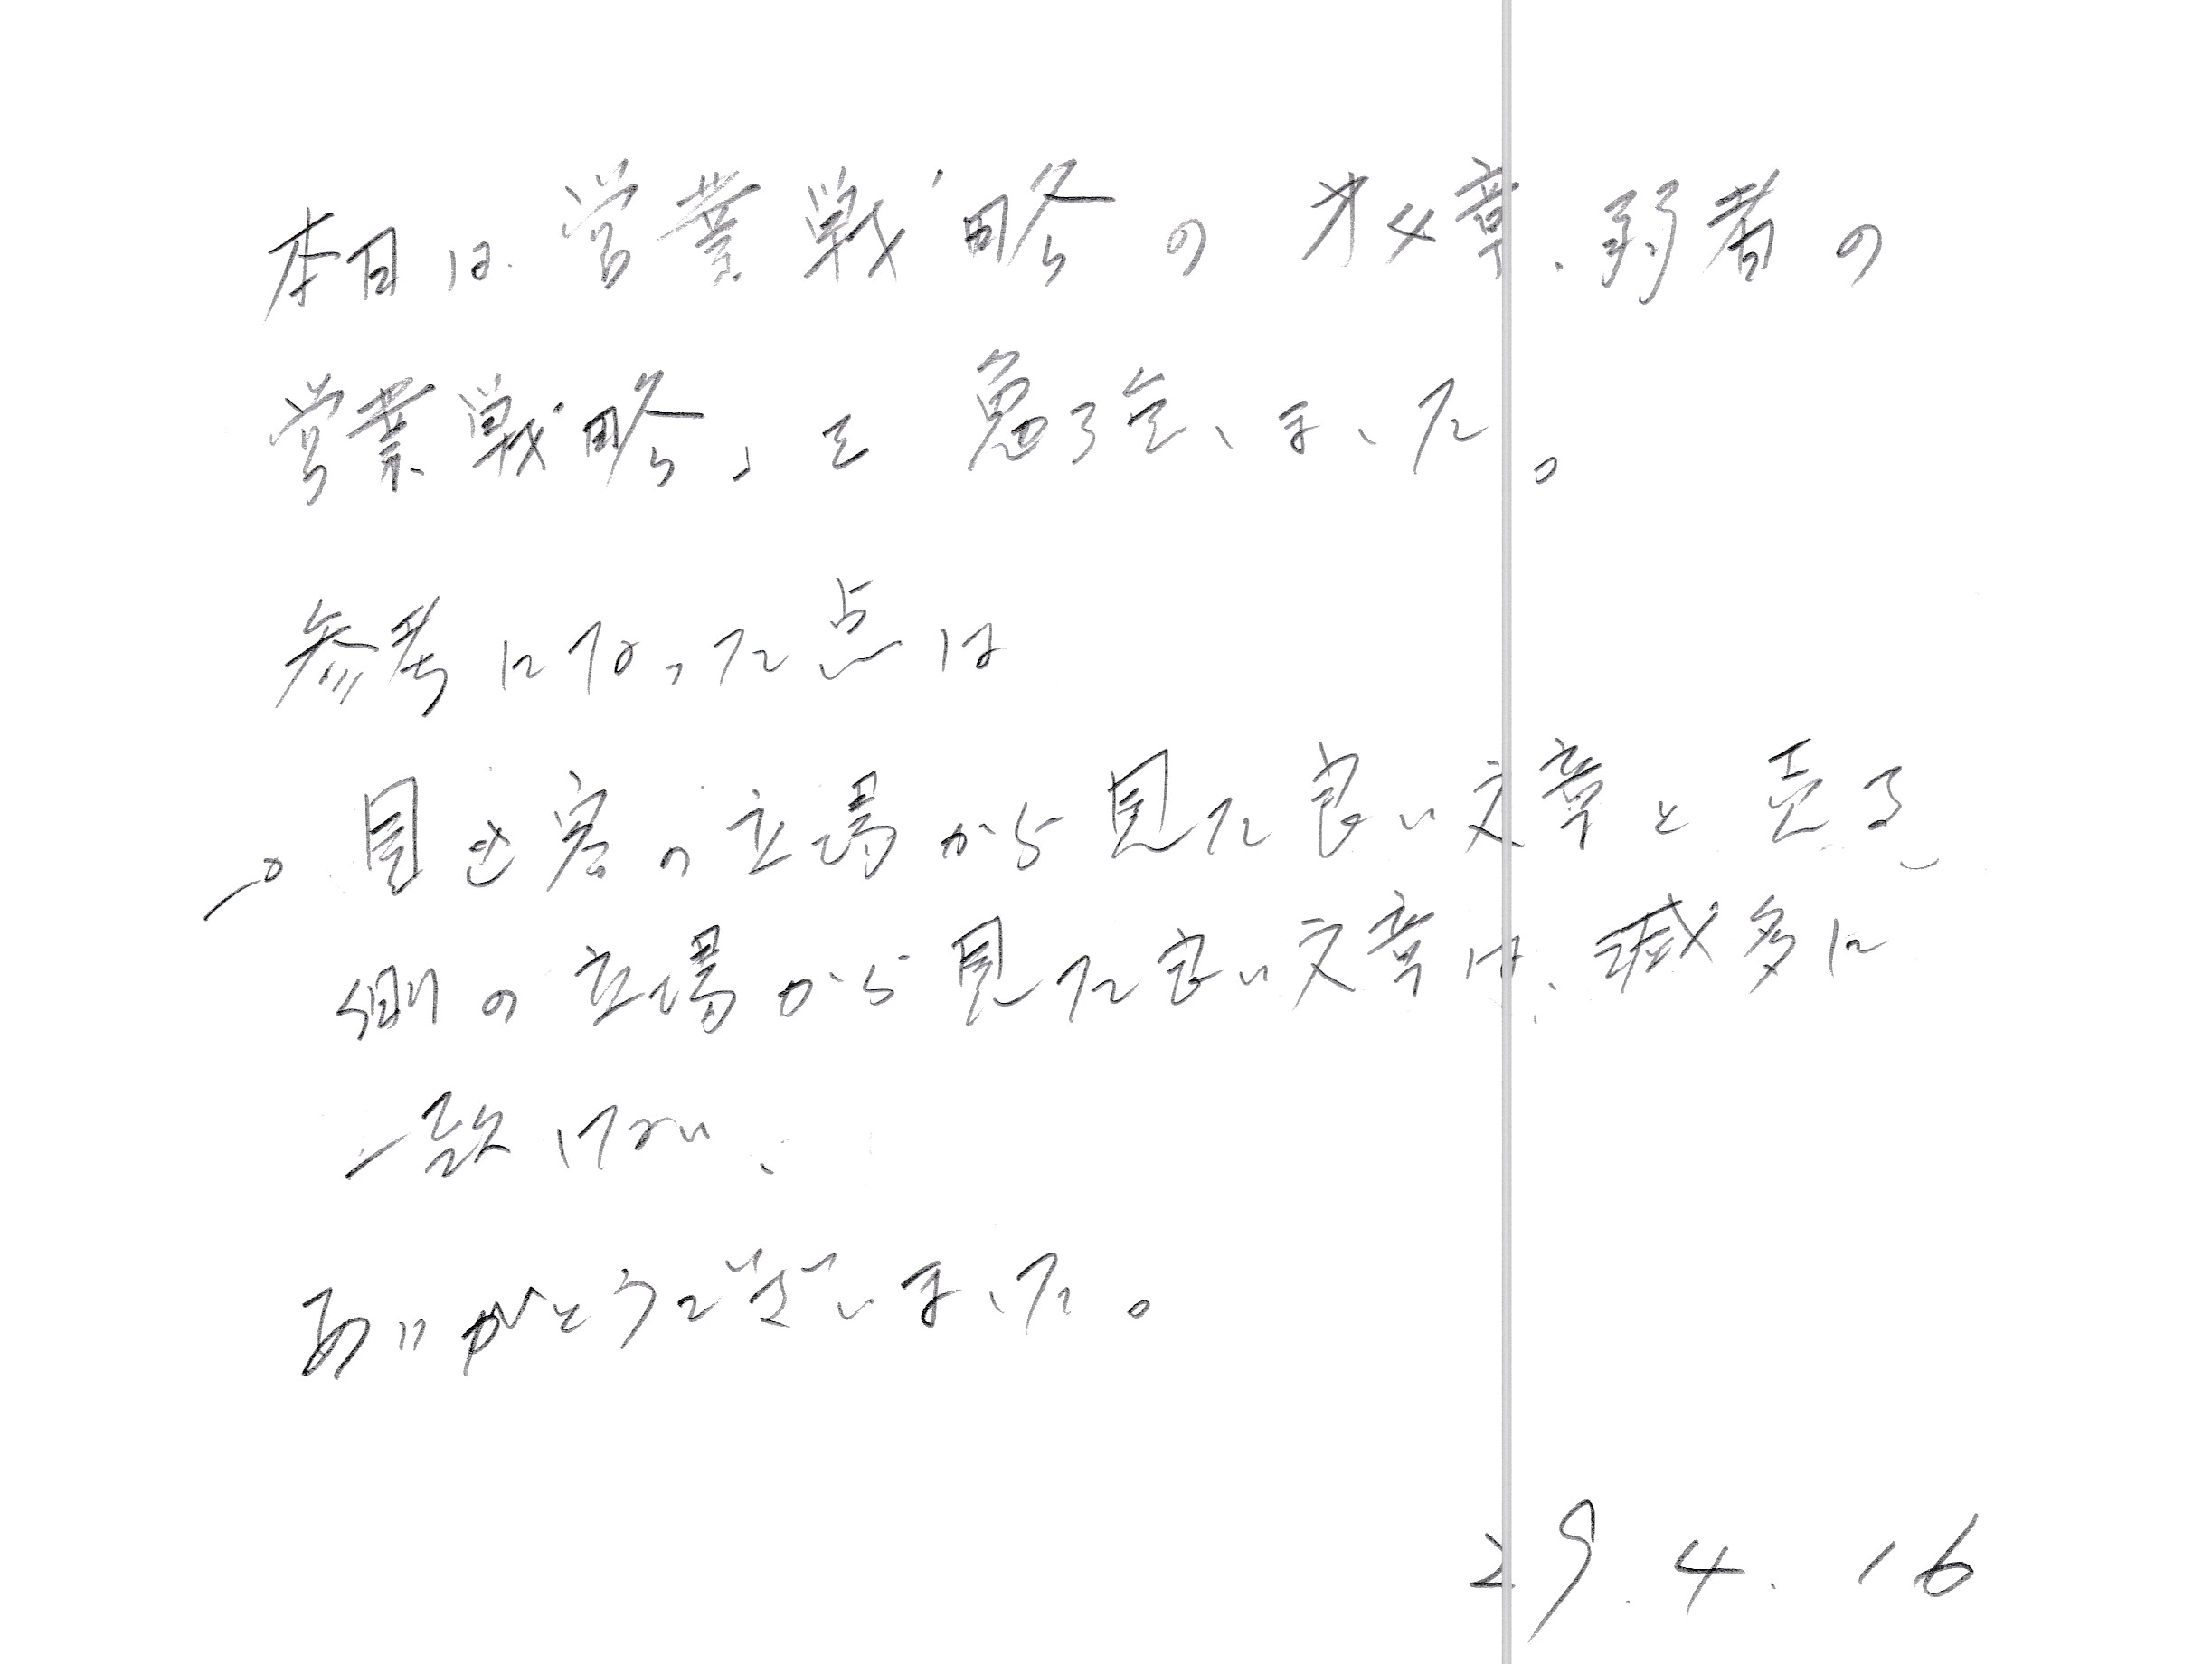 本日は営業戦略の才4章、弱者の
営業戦略」を勉強しました。
参考になった点は
。見込客の立場から見た良い文章と売る
側の立場から見た良い文章は、滅多に
一致しない、
ありがとうございました。
29.4.16